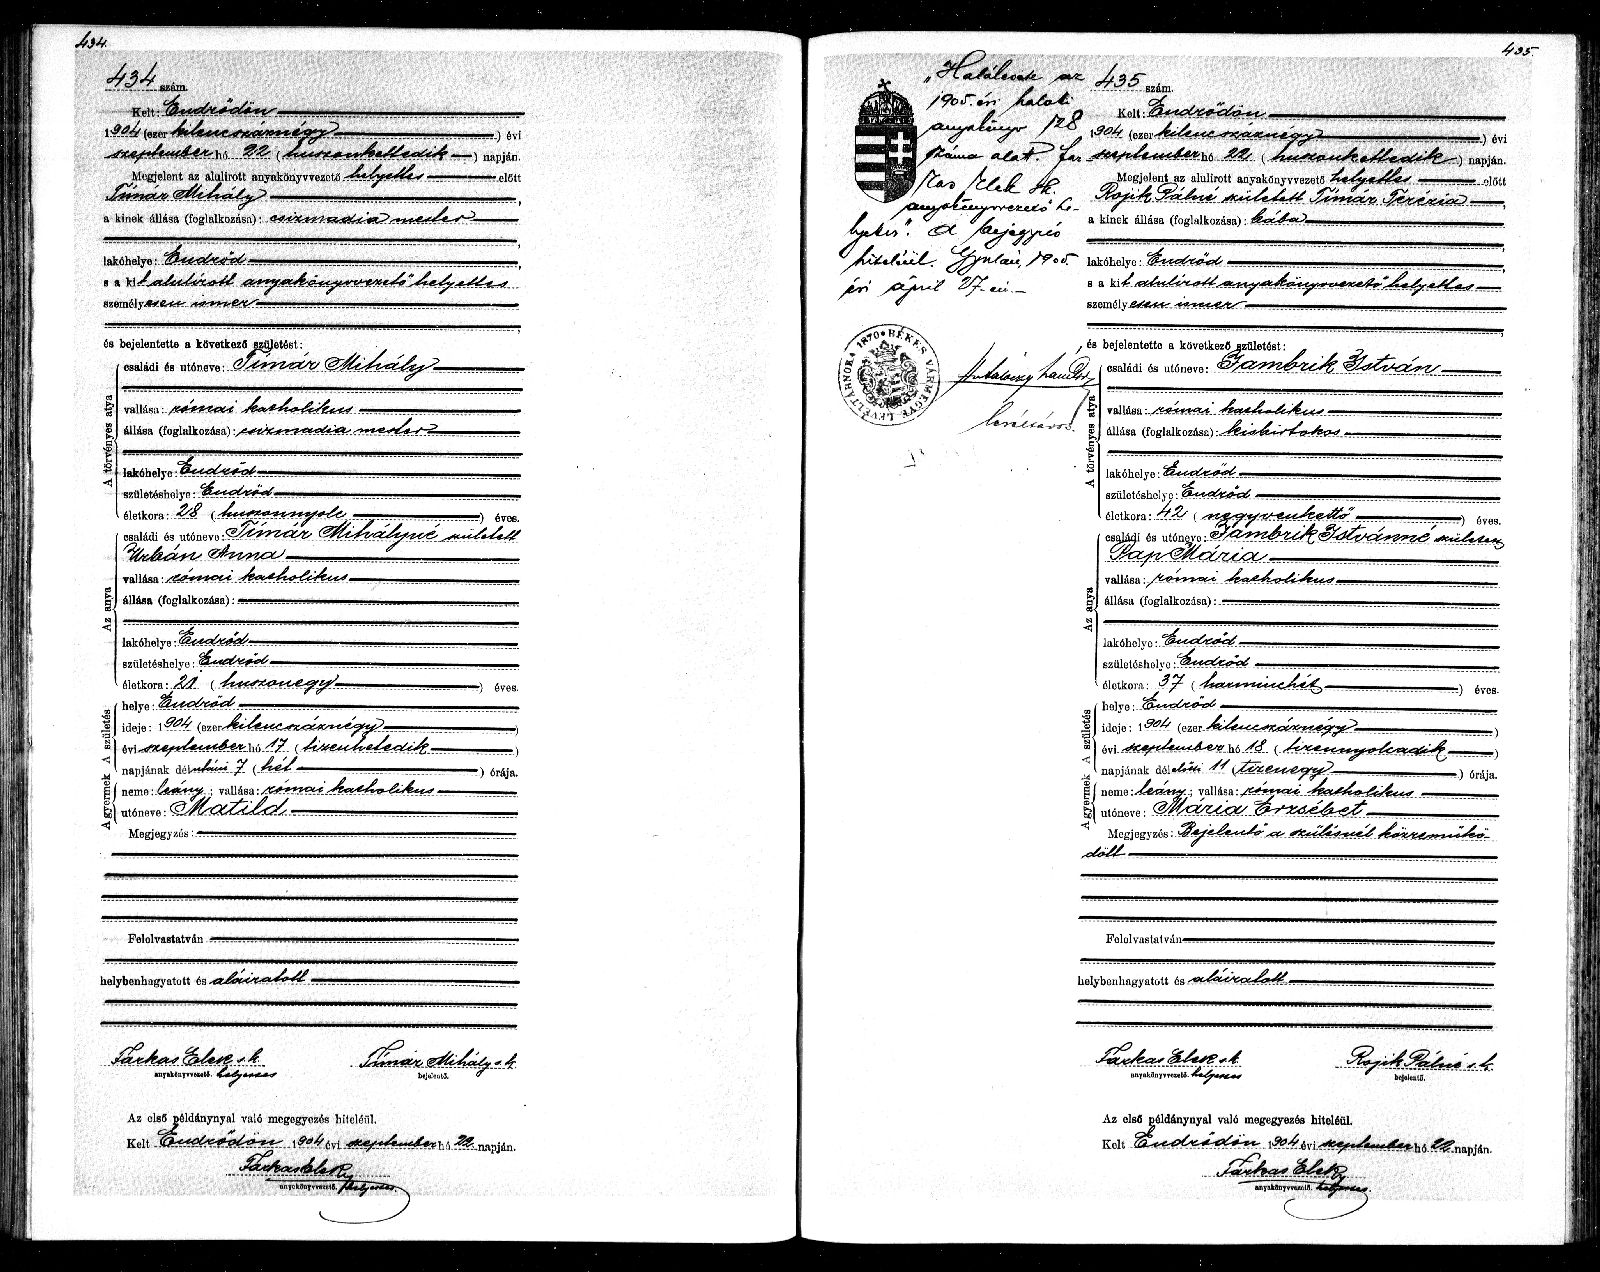 434.
434 szám.
Kelt: Endrődön
1904 (ezer kilencszáznégy) évi
szeptember hó 22 (huszonkettedik) napján.
Megjelent az alulirott anyakönyvvezető helyettes előtt
Tímár Mihály,
a kinek állása (foglalkozása): csizmadia mester
,
lakóhelye: Endrőd,
s a kit alulirott anyakönyvvezető helyettes
személyesen ismer
,
és bejelentette a következő születést:
A törvényes atya
családi és utóneve: Tímár Mihály
vallása: római katholikus
állása (foglalkozása): csizmadia mester
lakóhelye: Endrőd
születéshelye: Endrőd
életkora: 28 (huszonnyolc) éves.
Az anya
családi és utóneve: Tímár Mihályné született
Urbán Anna
vallása: római katholikus
állása (foglalkozása):
lakóhelye: Endrőd
születéshelye: Endrőd
életkora: 21 (huszonegy) éves.
A születés
helye: Endrőd
ideje: 1904 (ezer kilencszáznégy)
évi szeptember hó 17 (tizenhetedik)
napjának délutáni 7 (hét) órája.
A gyermek
neme: leány; vallása: római katholikus
utóneve: Matild
Megjegyzés:
Felolvastatván
helybenhagyatott és aláiratott
Farkas Elek s. k. Tímár Mihály s. k.
anyakönyvvezető. helyettes bejelentő.
Az első példánynyal való megegyezés hiteléül.
Kelt Endrődön 1904 évi szeptember hó 22 napján.
Farkas Elek
anyakönyvvezető. helyettes.
435.
„Halálesete az
1905. évi halotti
anyakönyv 128
száma alat. Far
kas Elek sk.
anyakönyvvezető he-
lyettes". A bejegyzés
hiteléül. Gyulán, 1905.
évi ápril 27-én
BÉKÉS VÁRMEGYE LEVÉLTÁRNOKA 1870
435 szám.
Kelt: Endrődön
1904 (ezer kilencszáznégy) évi
szeptember hó 22 (huszonkettedik) napján.
Megjelent az alulirott anyakönyvvezető helyettes előtt
Rojik Pálné született Tímár Terézia,
a kinek állása (foglalkozása): bába
,
lakóhelye: Endrőd,
s a kit alulirott anyakönyvvezető helyettes
személyesen ismer
,
és bejelentette a következő születést:
A törvényes atya
családi és utóneve: Jambrik István
vallása: római katholikus
állása (foglalkozása): kisbirtokos
lakóhelye: Endrőd
születéshelye: Endrőd
életkora: 42 (negyvenkettő) éves.
Az anya
családi és utóneve: Jambrik Istvánné született
Pap Mária
vallása: római katholikus
állása (foglalkozása):
lakóhelye: Endrőd
születéshelye: Endrőd
életkora: 37 (harminchét) éves.
A születés
helye: Endrőd
ideje: 1904 (ezer kilencszáznégy)
évi szeptember hó 18 (tizennyolcadik)
napjának délelőtti 11 (tizenegy) órája.
A gyermek
neme: leány; vallása: római katholikus
utóneve: Mária Erzsébet
Megjegyzés: Bejelentő a szülésnél közremükö-
dött
Felolvastatván
helybenhagyatott és aláiratott
Farkas Elek s. k. Rojik Pálné s. k.
anyakönyvvezető. helyettes bejelentő.
Az első példánynyal való megegyezés hiteléül.
Kelt Endrődön 1904 évi szeptember hó 22 napján.
Farkas Elek
anyakönyvvezető. helyettes.